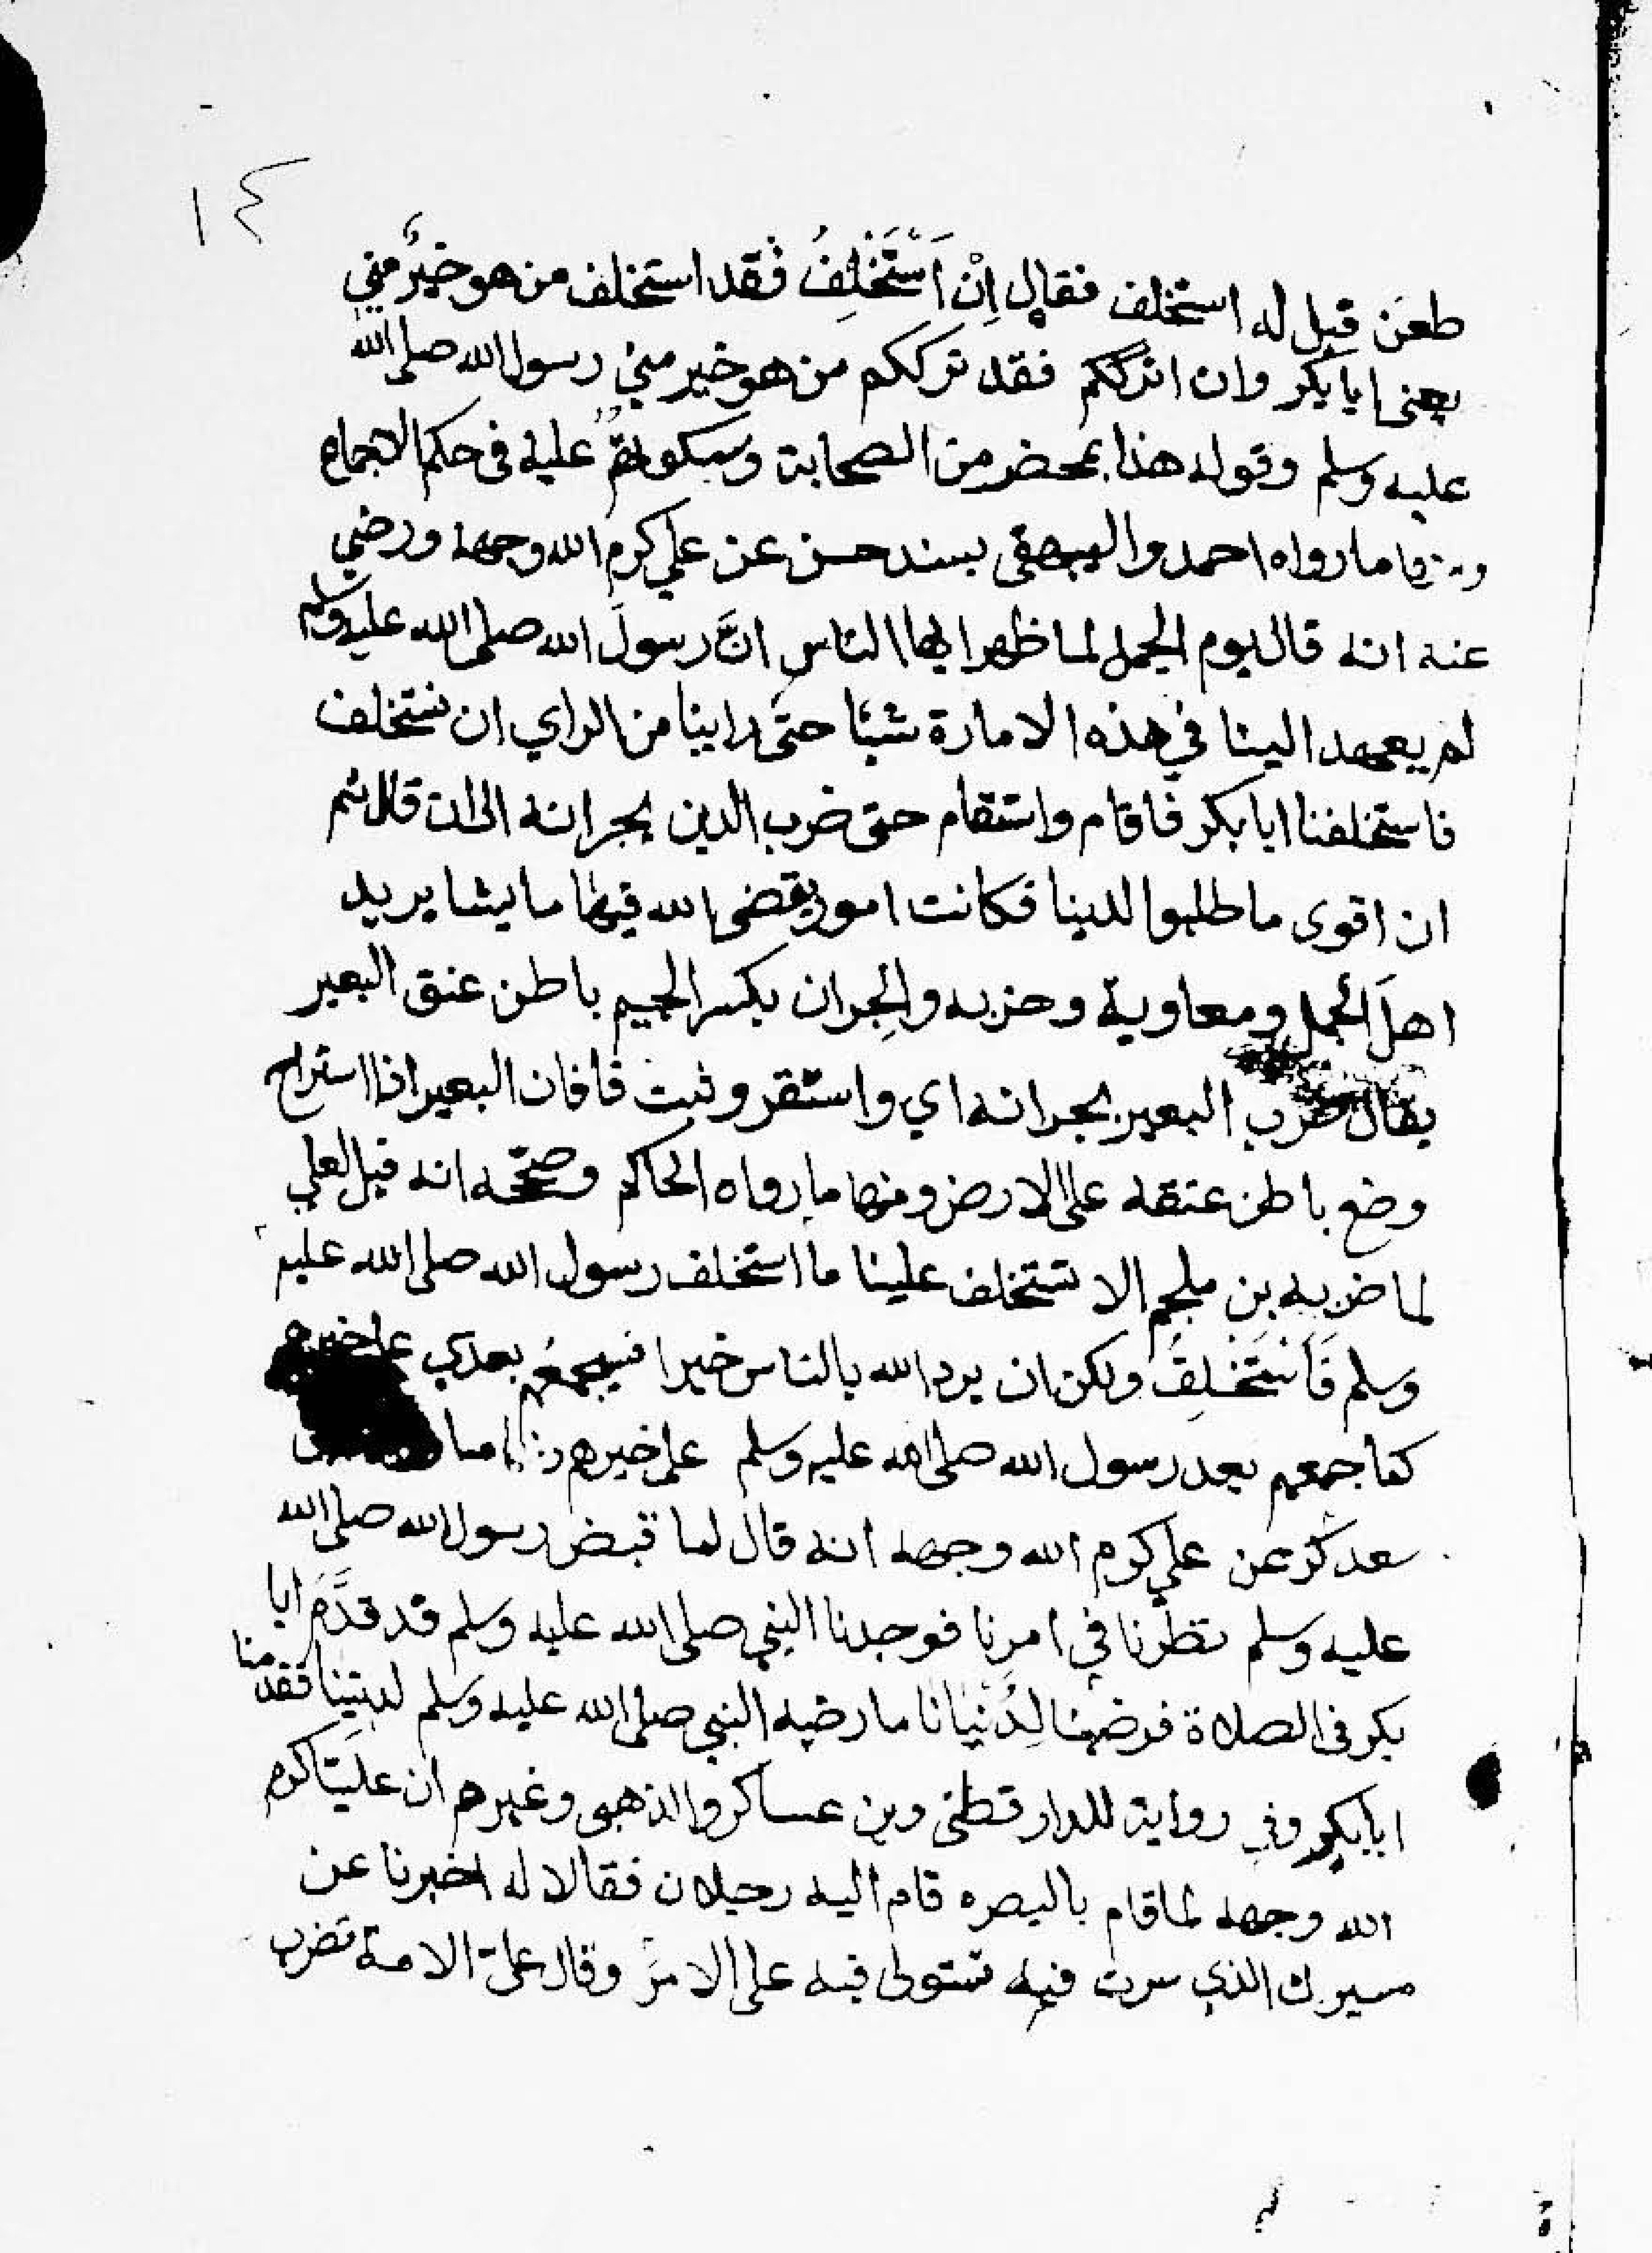 ١٤
طعن قيل له استخلف فقال إِنْ أَسْتَخْلِفُ فقد استخلف من هو خيرٌ مني
يعني ابا بكر وان اترككم فقد ترككم من هو خير مني رسول الله صلى الله
عليه وسلم وقوله هذا بمحضر من الصحابة وسكوتهُم عليه في حكم الاجماع
ومنها ما رواه احمد والبيهقي بسند حسن عن علي كرم الله وجهه ورضي
عنه انه قال يوم الجمل لما ظهر ايها الناس انَّ رسولَ الله صلى الله عليه وسلم
لم يعهد الينا في هذه الامارة شيئا حتى راينا من الراي ان نستخلف
فاستخلفنا ابا بكر فاقام واستقام حتى ضرب الدين بجرانه الى ان قال ثم
ان اقوى ما طلبوا لدينا فكانت امور يقضى الله فيها ما يشا يريد
اهلَ الجمل ومعاوية وحزبه والجِران بكسر الجيم باطن عنق البعير
يقال ضرب البعير بجرانه اي واستقر وثبت فافان البعير اذا استراح
وضع باطن عنقه على الارض ومنها ما رواه الحاكم وصحّحه انه قيل لعلي
لما ضربه بن ملجم الا تستخلف علينا ما استخلف رسول الله صلى الله عليه
وسلم فَأَسْتَخْلِفُ ولكن ان يرد الله بالناس خيرا فسيجمعُهم بعدي على خيرهم
كما جمعهم بعد رسول الله صلى الله عليه وسلم على خيرهم
سعد كر عن علي كرم الله وجهه انه قال لما قبض رسول الله صلى الله
عليه وسلم نظرنا في امرنا فوجدنا النبي صلى الله عليه وسلم قد قدَّم ابا
بكر في الصلاة فرضينا لِدُنْيانا ما رضيه النبي صلى الله عليه وسلم لديننا فقدمنا
ابا بكر وفي رواية للدارقطني وبن عساكر والذهبي وغيرهم ان عليّا كرم
الله وجهه لما قام بالبصره قام اليه رجلان فقالا له اخبرنا عن
مسيرك الذي سرت فيه تستولي فيه على الامر وقال على الامة تضرب